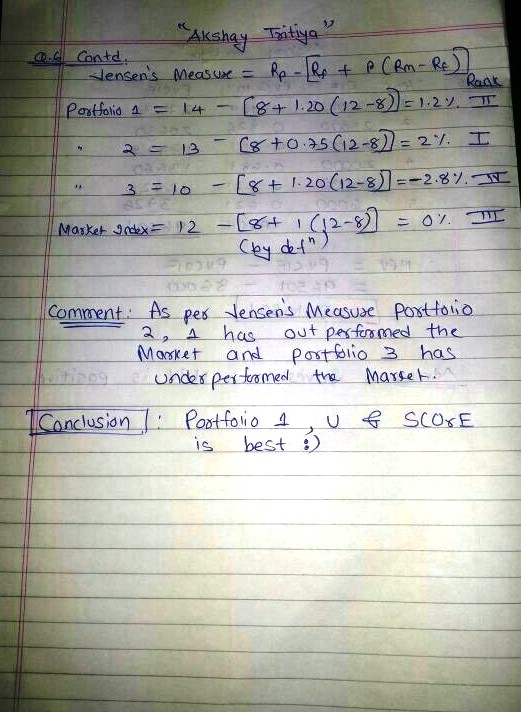 "Akshay Tritiya"
Q.6 Contd.
Jensen's Measure = Rp - [Rf + β (Rm - Rf)]
Rank
Portfolio 1 = 14 - [8 + 1.20 (12 - 8)] = 1.2 %. II
" 2 = 13 - [8 + 0.75 (12 - 8)] = 2 %. I
" 3 = 10 - [8 + 1.20 (12 - 8)] = -2.8 %. IV
Market Index = 12 - [8 + 1 (12 - 8)] = 0 %. III
(by defn)
Comment: As per Jensen's Measure Portfolio
2, 1 has out performed the
Market and portfolio 3 has
under performed the Market.
Conclusion : Portfolio 1, U & SCOrE
is best :)